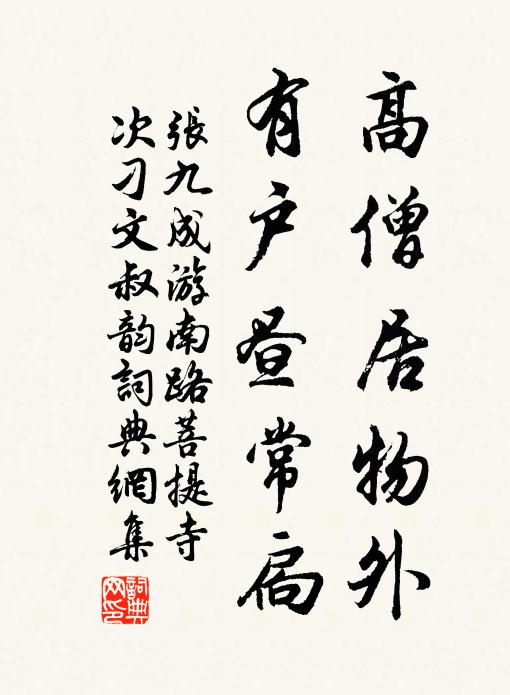 高僧居物外
有户昼常扃
張九成游南路菩提寺
次刁文叔韵詞典網集
詞典网印